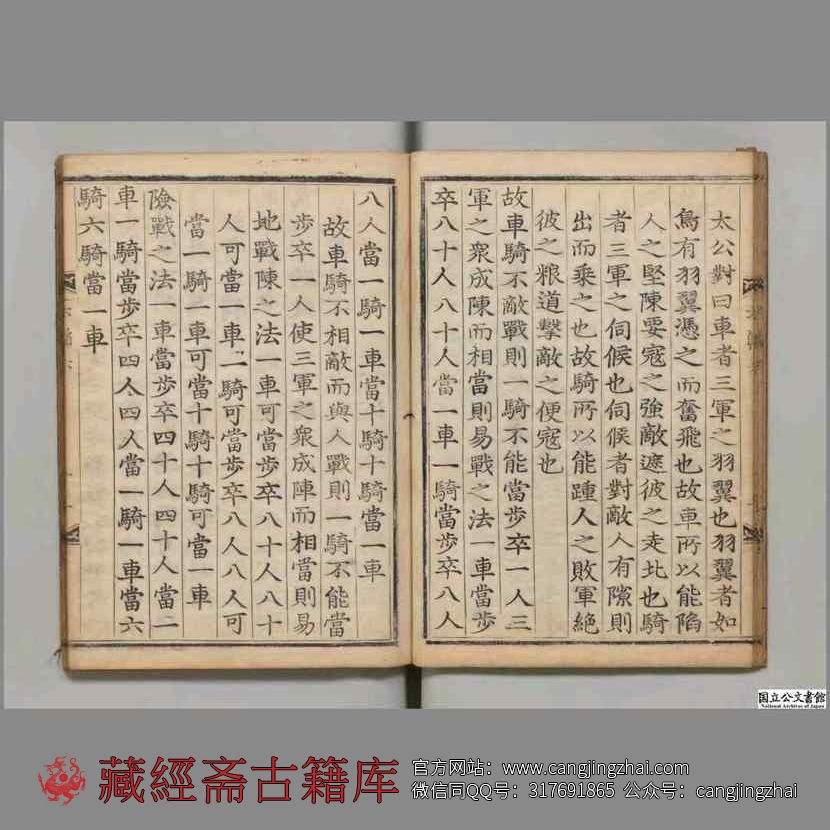 太公對曰車者三軍之羽翼也羽翼者如
鳥有羽翼憑之而奮飛也故車所以能陷
人之堅陳要寇之強敵遮彼之走北也騎
者三軍之伺候也伺候者對敵人有隙則
出而乘之也故騎所以能踵人之敗軍絕
彼之粮道擊敵之便寇也
故車騎不敵戰則一騎不能當步卒一人三
軍之衆成陳而相當則易戰之法一車當步
卒八十人八十人當一車一騎當步卒八人
八人當一騎一車當十騎十騎當一車
故車騎不相敵而與人戰則一騎不能當
步卒一人使三軍之衆成陣而相當則易
地戰陳之法一車可當步卒八十人八十
人可當一車一騎可當步卒八人八人可
當一騎一車可當十騎十騎可當一車
險戰之法一車當步卒四十人四十人當一
車一騎當步卒四人四人當一騎一車當六
騎六騎當一車
国立公文書館
National Archives of Japan
藏經斋古籍库
官方网站：www.cangjingzhai.com
微信同QQ号：317691865 公众号：cangjingzhai